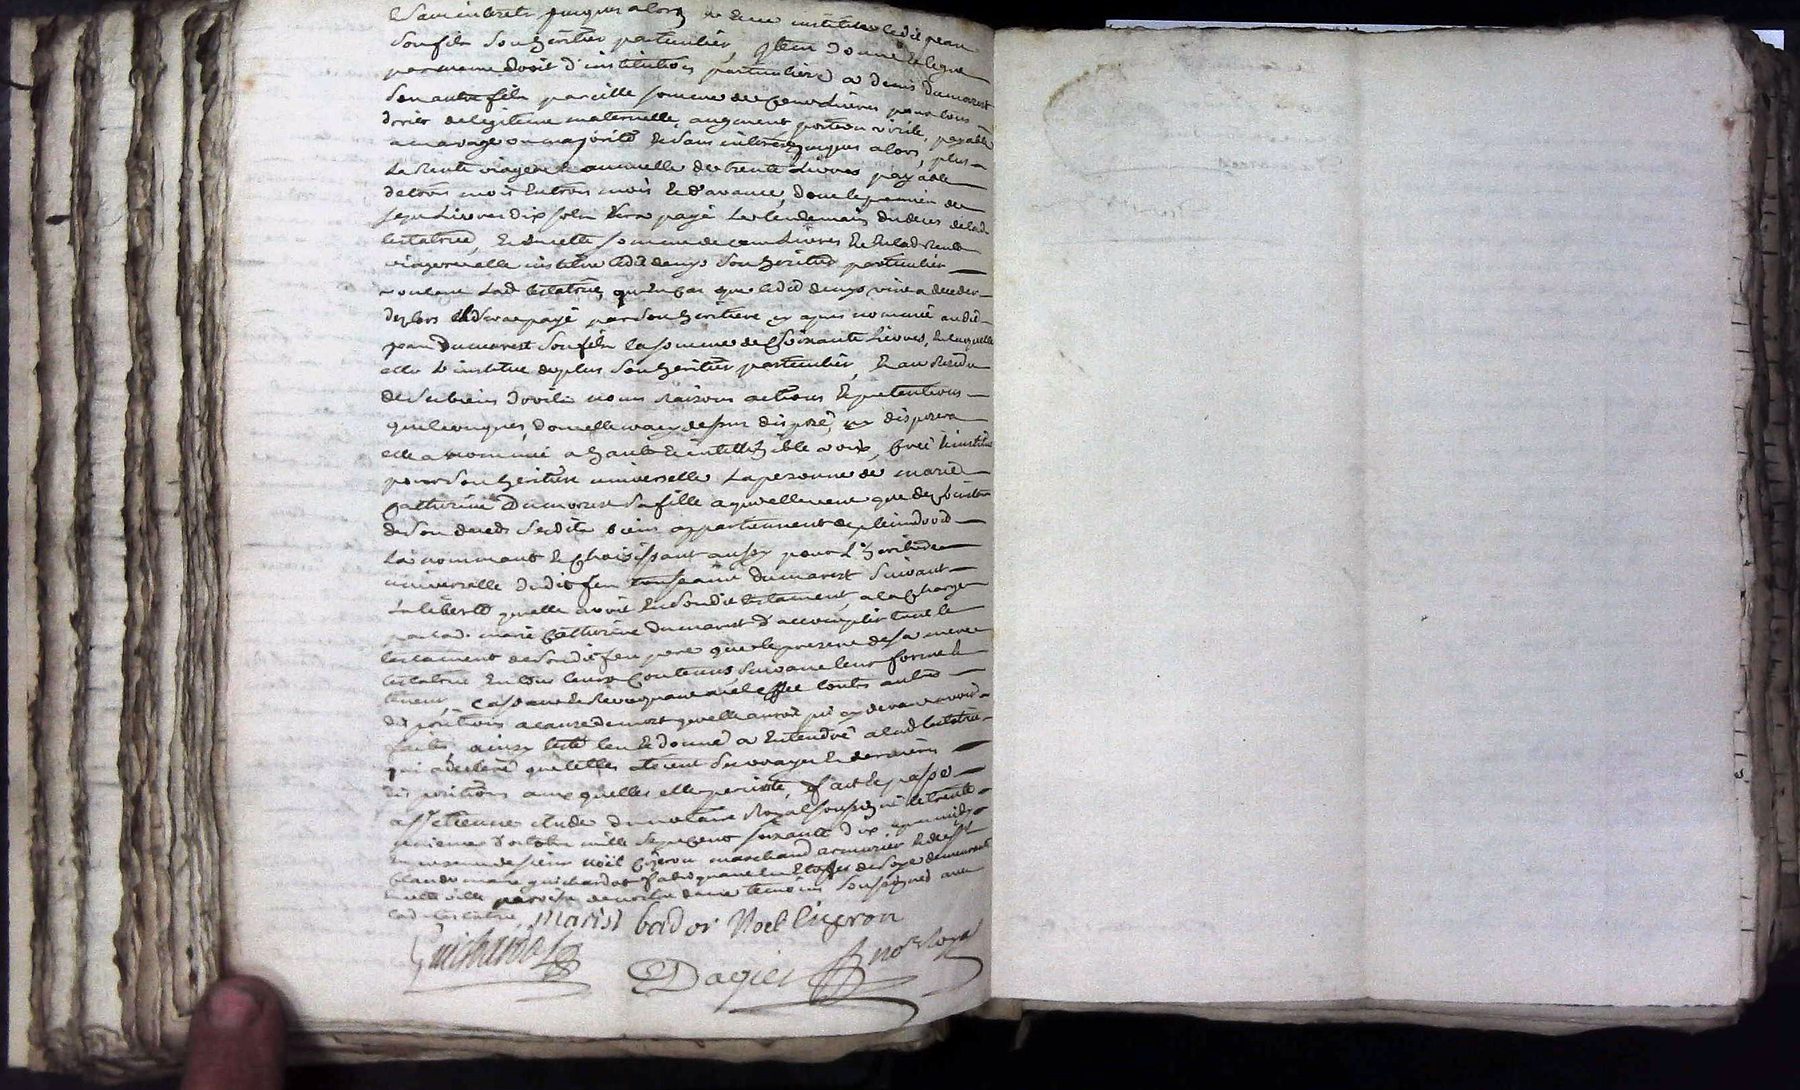 Sans interets jusques alors, de deux institue ledit jean
son fils son heritier particulier, Item donne & legue
par meme droit d'institution particuliere a denis dumarest
son autre fils pareille somme de Cent Livres pour tous
droits de legitime maternelle, augment portion virile, payable
a mariage ou majorité & Sans interets jusques alors, plus
La Rente viagere & annuelle de trente Livres payable
de trois mois En trois mois & d'avance, dont le premier de
sept Livres dix sols sera payé le lendemain du deces de lad
testatrice, & En cette somme de cent Livres & En lad Rente
viagere elle institue ledit denys son heritier particulier
voulant Lad testatrice, qu'En Cas que ledit denys vint a deceder
des lors il sera payé par son heritiere cy apres nommée audit
jean Dumarest son fils la somme de Soixante Livres, En laquelle
elle L'institue de plus son heritier particulier, & au Residu
de Ses biens droits noms Raisons actions & pretentions
quelconques, dont elle n'a cy dessus disposé, ny disposera
elle a nommé a haute & intelligible voix, Créé & institué
pour son heritiere universelle La personne de marie
Catherine Dumarest sa fille a qui elle veut que des l'instant
de son deceds Sesdits biens appartiennent de plein droit
La nommant & Choisissant aussy pour L'heritiere
universelle dudit feu dumarest suivant
La liberté quelle avoit En sondit testament a la Charge
par lad. marie Catherine Dumarest d'accomplir tant le
testament de sondit feu pere que le present de sa mere
testatrice En tous leurs Contenus suivant leur forme &
teneur, Cassant & Revoquant a cet effet toutes autres
dispositions a cause de mort quelle auroit pû cy devant avoir
faites, ainsy testé leu & donné a Entendre a lad testatrice
qui a declaré quetelles etoient Ses vrayes & dernieres
dispositions aux quelles elle persiste, fait & passé
a St Etienne étude du notaire Royal soussigné le trente
unieme d'octobre mille Sept Cent soixante dix apres midy
En presence de sieurs noël Cizeron marchand armurier & de Sr
Claude marie guichardot fabriquant En Etoffes de Soye demeurants
En cette ville paroisse de notre dame temoins soussignés avec
lad testatrice
marist bador Noel Cizeron
Guichardot
Dagier no.re Royal